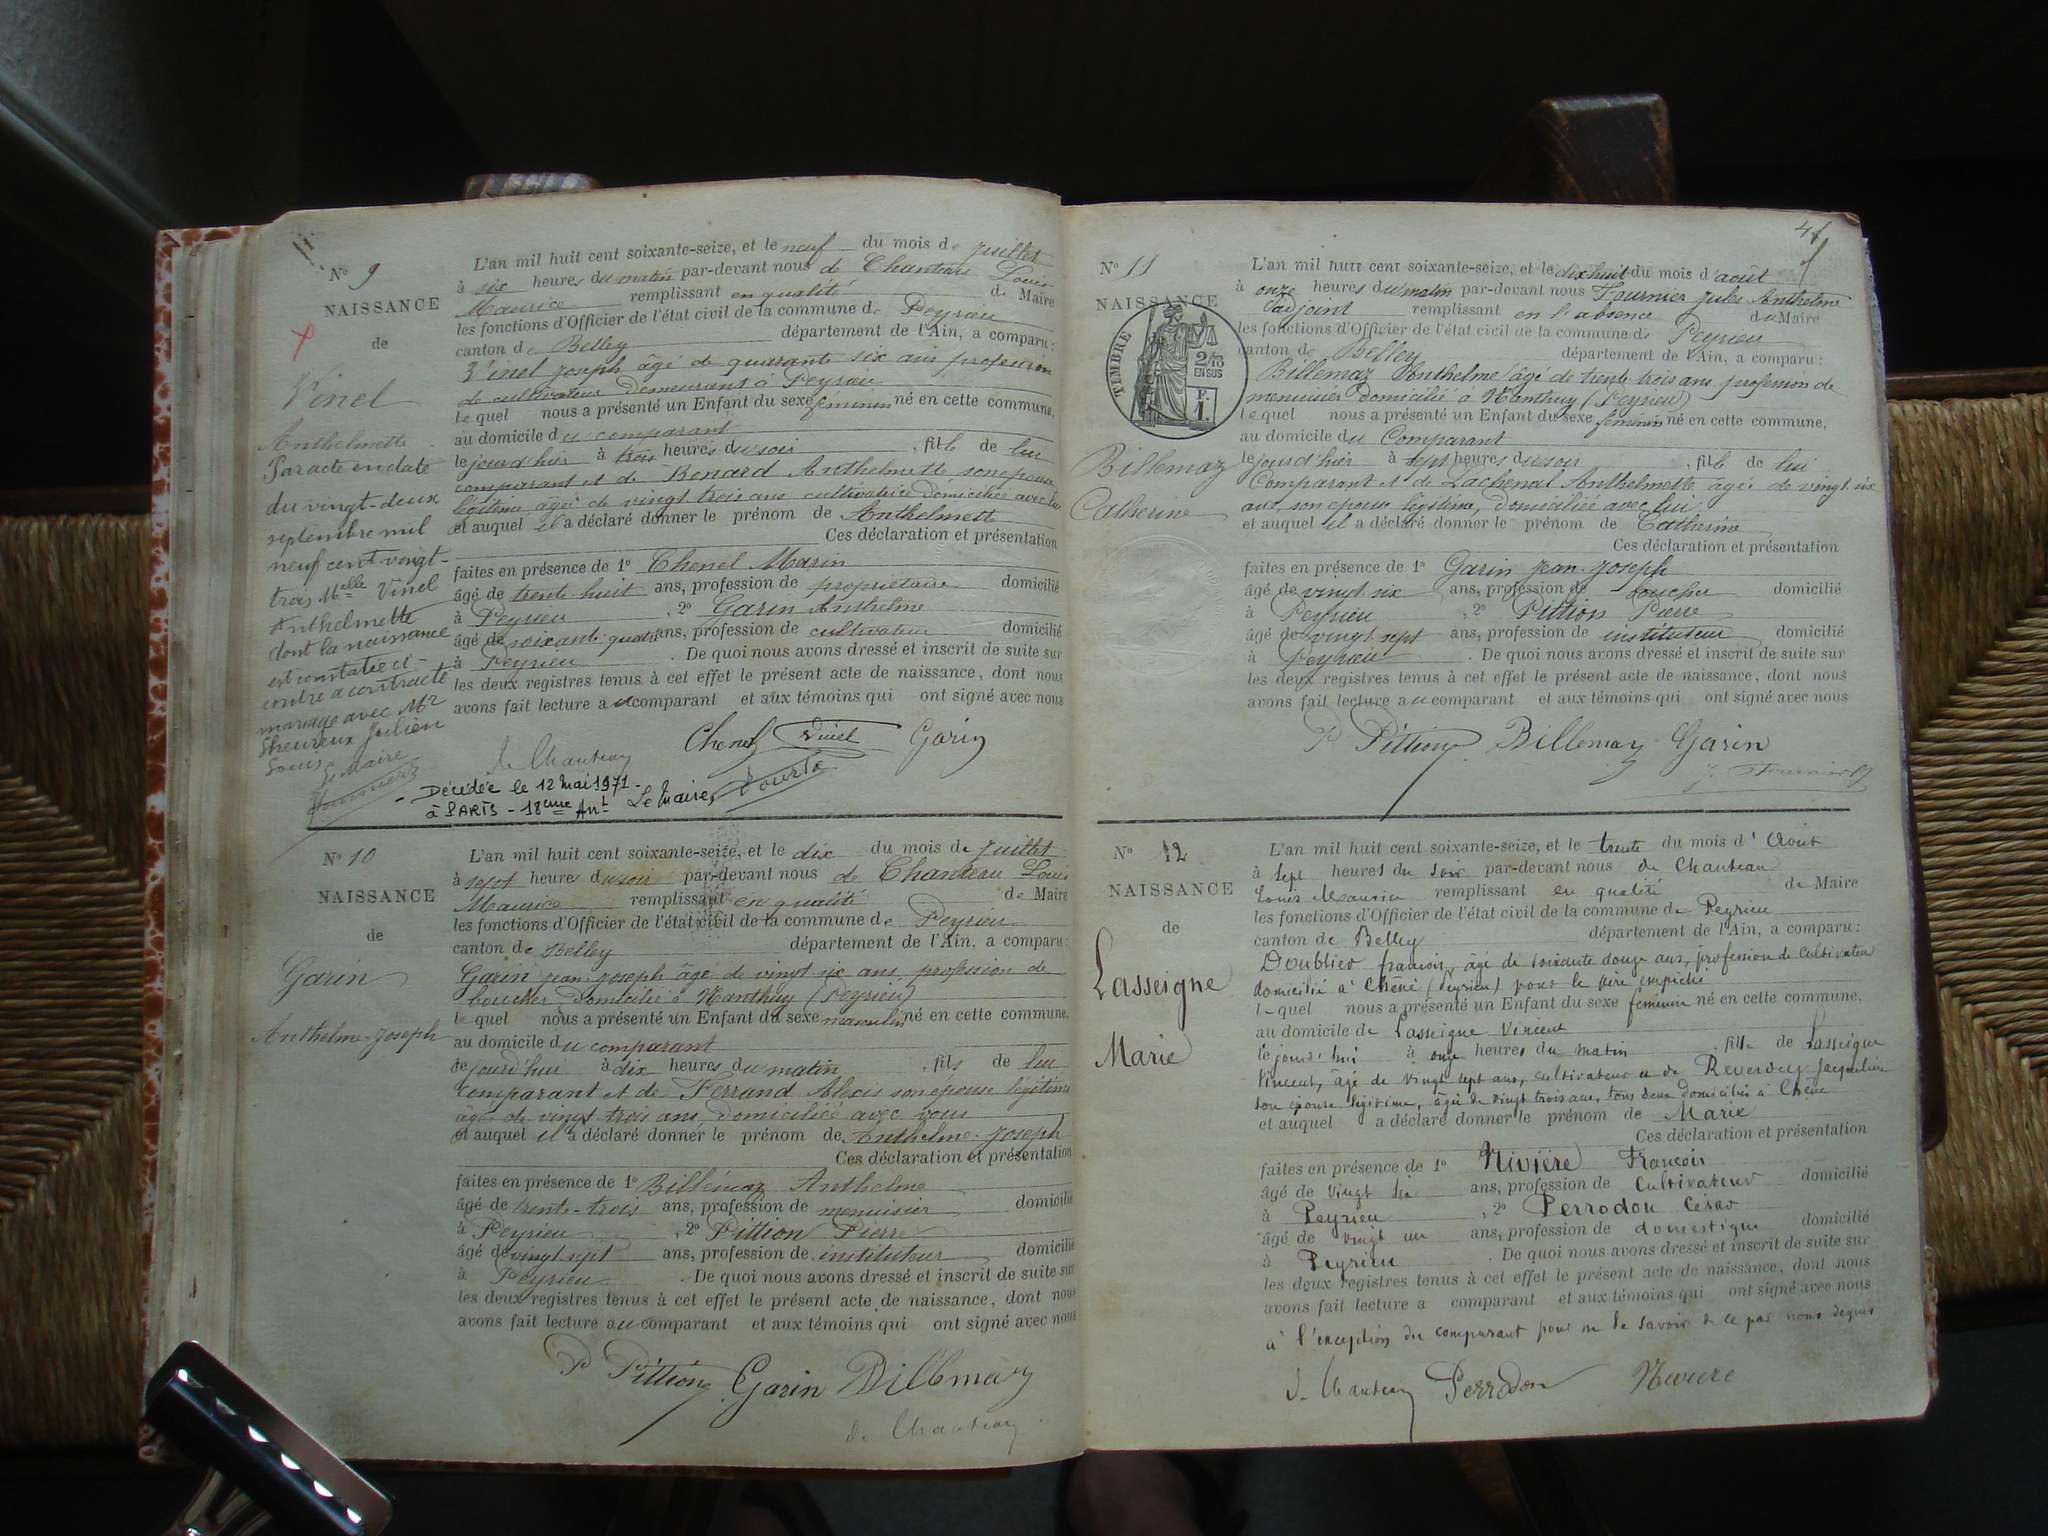 N° 9
NAISSANCE
de
Vinel
Anthelmette
Par acte en date
du vingt-deux
septembre mil
neuf cent vingt-
trois Melle Vinel
Anthelmette
dont la naissance
est constatée ci-
contre a contracté
mariage avec Mr
Lheureux Julien
Louis
Le Maire
L'an mil huit cent soixante-seize, et le neuf du mois de juillet
à six heures du matin par-devant nous de Chanteau Louis
Maurice remplissant en qualité de Maire
les fonctions d'Officier de l'état civil de la commune de Peyrieu
canton de Belley département de l'Ain, a comparu :
Vinel Joseph âgé de quarante six ans profession
de cultivateur demeurant à Peyrieu
lequel nous a présenté un Enfant du sexe féminin né en cette commune,
au domicile du comparant
le jour d'hier à trois heures du soir, fille de lui
comparant et de Benard Anthelmette son épouse
légitime âgée de vingt trois ans cultivatrice domiciliée avec lui
et auquel il a déclaré donner le prénom de Anthelmette
Ces déclaration et présentation
faites en présence de 1° Chenel Marin
âgé de trente huit ans, profession de propriétaire domicilié
à Peyrieu, 2° Garin Anthelme
âgé de soixante quatre ans, profession de cultivateur domicilié
à Peyrieu. De quoi nous avons dressé et inscrit de suite sur
les deux registres tenus à cet effet le présent acte de naissance, dont nous
avons fait lecture au comparant et aux témoins qui ont signé avec nous
Chenel Vinel Garin
de Chanteau
- Décédée le 12 Mai 1971 -
à PARIS - 18ème Art Le Maire,
N° 10
NAISSANCE
de
Garin
Anthelme-Joseph
L'an mil huit cent soixante-seize, et le dix du mois de juillet
à sept heures du soir par-devant nous de Chanteau Louis
Maurice remplissant en qualité de Maire
les fonctions d'Officier de l'état civil de la commune de Peyrieu
canton de Belley département de l'Ain, a comparu :
Garin jean joseph âgé de vingt six ans, profession de
boucher, domicilié à Nanthuy (Peyrieu)
lequel nous a présenté un Enfant du sexe masculin né en cette commune,
au domicile du comparant
le jourd'hui à dix heures du matin, fils de lui
comparant et de Ferrand Alexis son épouse légitime
âgée de vingt trois ans, domiciliée avec nous
et auquel il a déclaré donner le prénom de Anthelme-Joseph
Ces déclaration et présentation
faites en présence de 1° Billemaz Anthelme
âgé de trente-trois ans, profession de menuisier domicilié
à Peyrieu, 2° Pittion Pierre
âgé de vingt sept ans, profession de instituteur domicilié
à Peyrieu. De quoi nous avons dressé et inscrit de suite sur
les deux registres tenus à cet effet le présent acte de naissance, dont nous
avons fait lecture au comparant et aux témoins qui ont signé avec nous
P Pittion Garin Billemaz
de Chanteau
N° 11
NAISSANCE
TIMBRE
2/10
EN SUS
F.
1.
Billemaz
Catherine
L'an mil huit cent soixante-seize, et le dix huit du mois d'août
à onze heures du matin par-devant nous Fournier Jules Anthelme
adjoint remplissant en l'absence du Maire
les fonctions d'Officier de l'état civil de la commune de Peyrieu
canton de Belley département de l'Ain, a comparu :
Billemaz Anthelme âgé de trente trois ans profession de
menuisier domicilié à Nanthuy (Peyrieu)
lequel nous a présenté un Enfant du sexe féminin né en cette commune,
au domicile du Comparant
le jour d'hier à sept heures du soir, fille de lui
Comparant et de Lachenal Anthelmette âgée de vingt-six
ans, son épouse légitime, domiciliée avec lui
et auquel il a déclaré donner le prénom de Catherine
Ces déclaration et présentation
faites en présence de 1° Garin Jean-Joseph
âgé de vingt six ans, profession de boucher domicilié
à Peyrieu, 2° Pittion Pierre
âgé de vingt sept ans, profession de instituteur domicilié
à Peyrieu. De quoi nous avons dressé et inscrit de suite sur
les deux registres tenus à cet effet le présent acte de naissance, dont nous
avons fait lecture au comparant et aux témoins qui ont signé avec nous
P Pittion Billemaz Garin
J. Fournier
N° 12
NAISSANCE
de
Lasseigne
Marie
L'an mil huit cent soixante-seize, et le trente du mois d'Août
à sept heures du soir par-devant nous de Chanteau
Louis Maurice remplissant en qualité de Maire
les fonctions d'Officier de l'état civil de la commune de Peyrieu
canton de Belley département de l'Ain, a comparu :
Doublier françois, âgé de soixante douze ans, profession de Cultivateur
domicilié à Chêne (Peyrieu) pour le père empêché
lequel nous a présenté un Enfant du sexe féminin né en cette commune,
au domicile de Lasseigne Vincent
le jourd'hui à onze heures du matin, fille de Lasseigne
Vincent, âgé de vingt sept ans, cultivateur et de Reverdy Jacqueline
son épouse légitime, âgée de vingt trois ans, tous deux domiciliés à Chêne
et auquel a déclaré donner le prénom de Marie
Ces déclaration et présentation
faites en présence de 1° Nivière François
âgé de vingt six ans, profession de Cultivateur domicilié
à Peyrieu, 2° Perrodon César
âgé de vingt un ans, profession de domestique domicilié
à Peyrieu. De quoi nous avons dressé et inscrit de suite sur
les deux registres tenus à cet effet le présent acte de naissance, dont nous
avons fait lecture a comparant et aux témoins qui ont signé avec nous
à l'exception du comparant pour ne le savoir de ce par nous requis
de Chanteau Perrodon Nivière